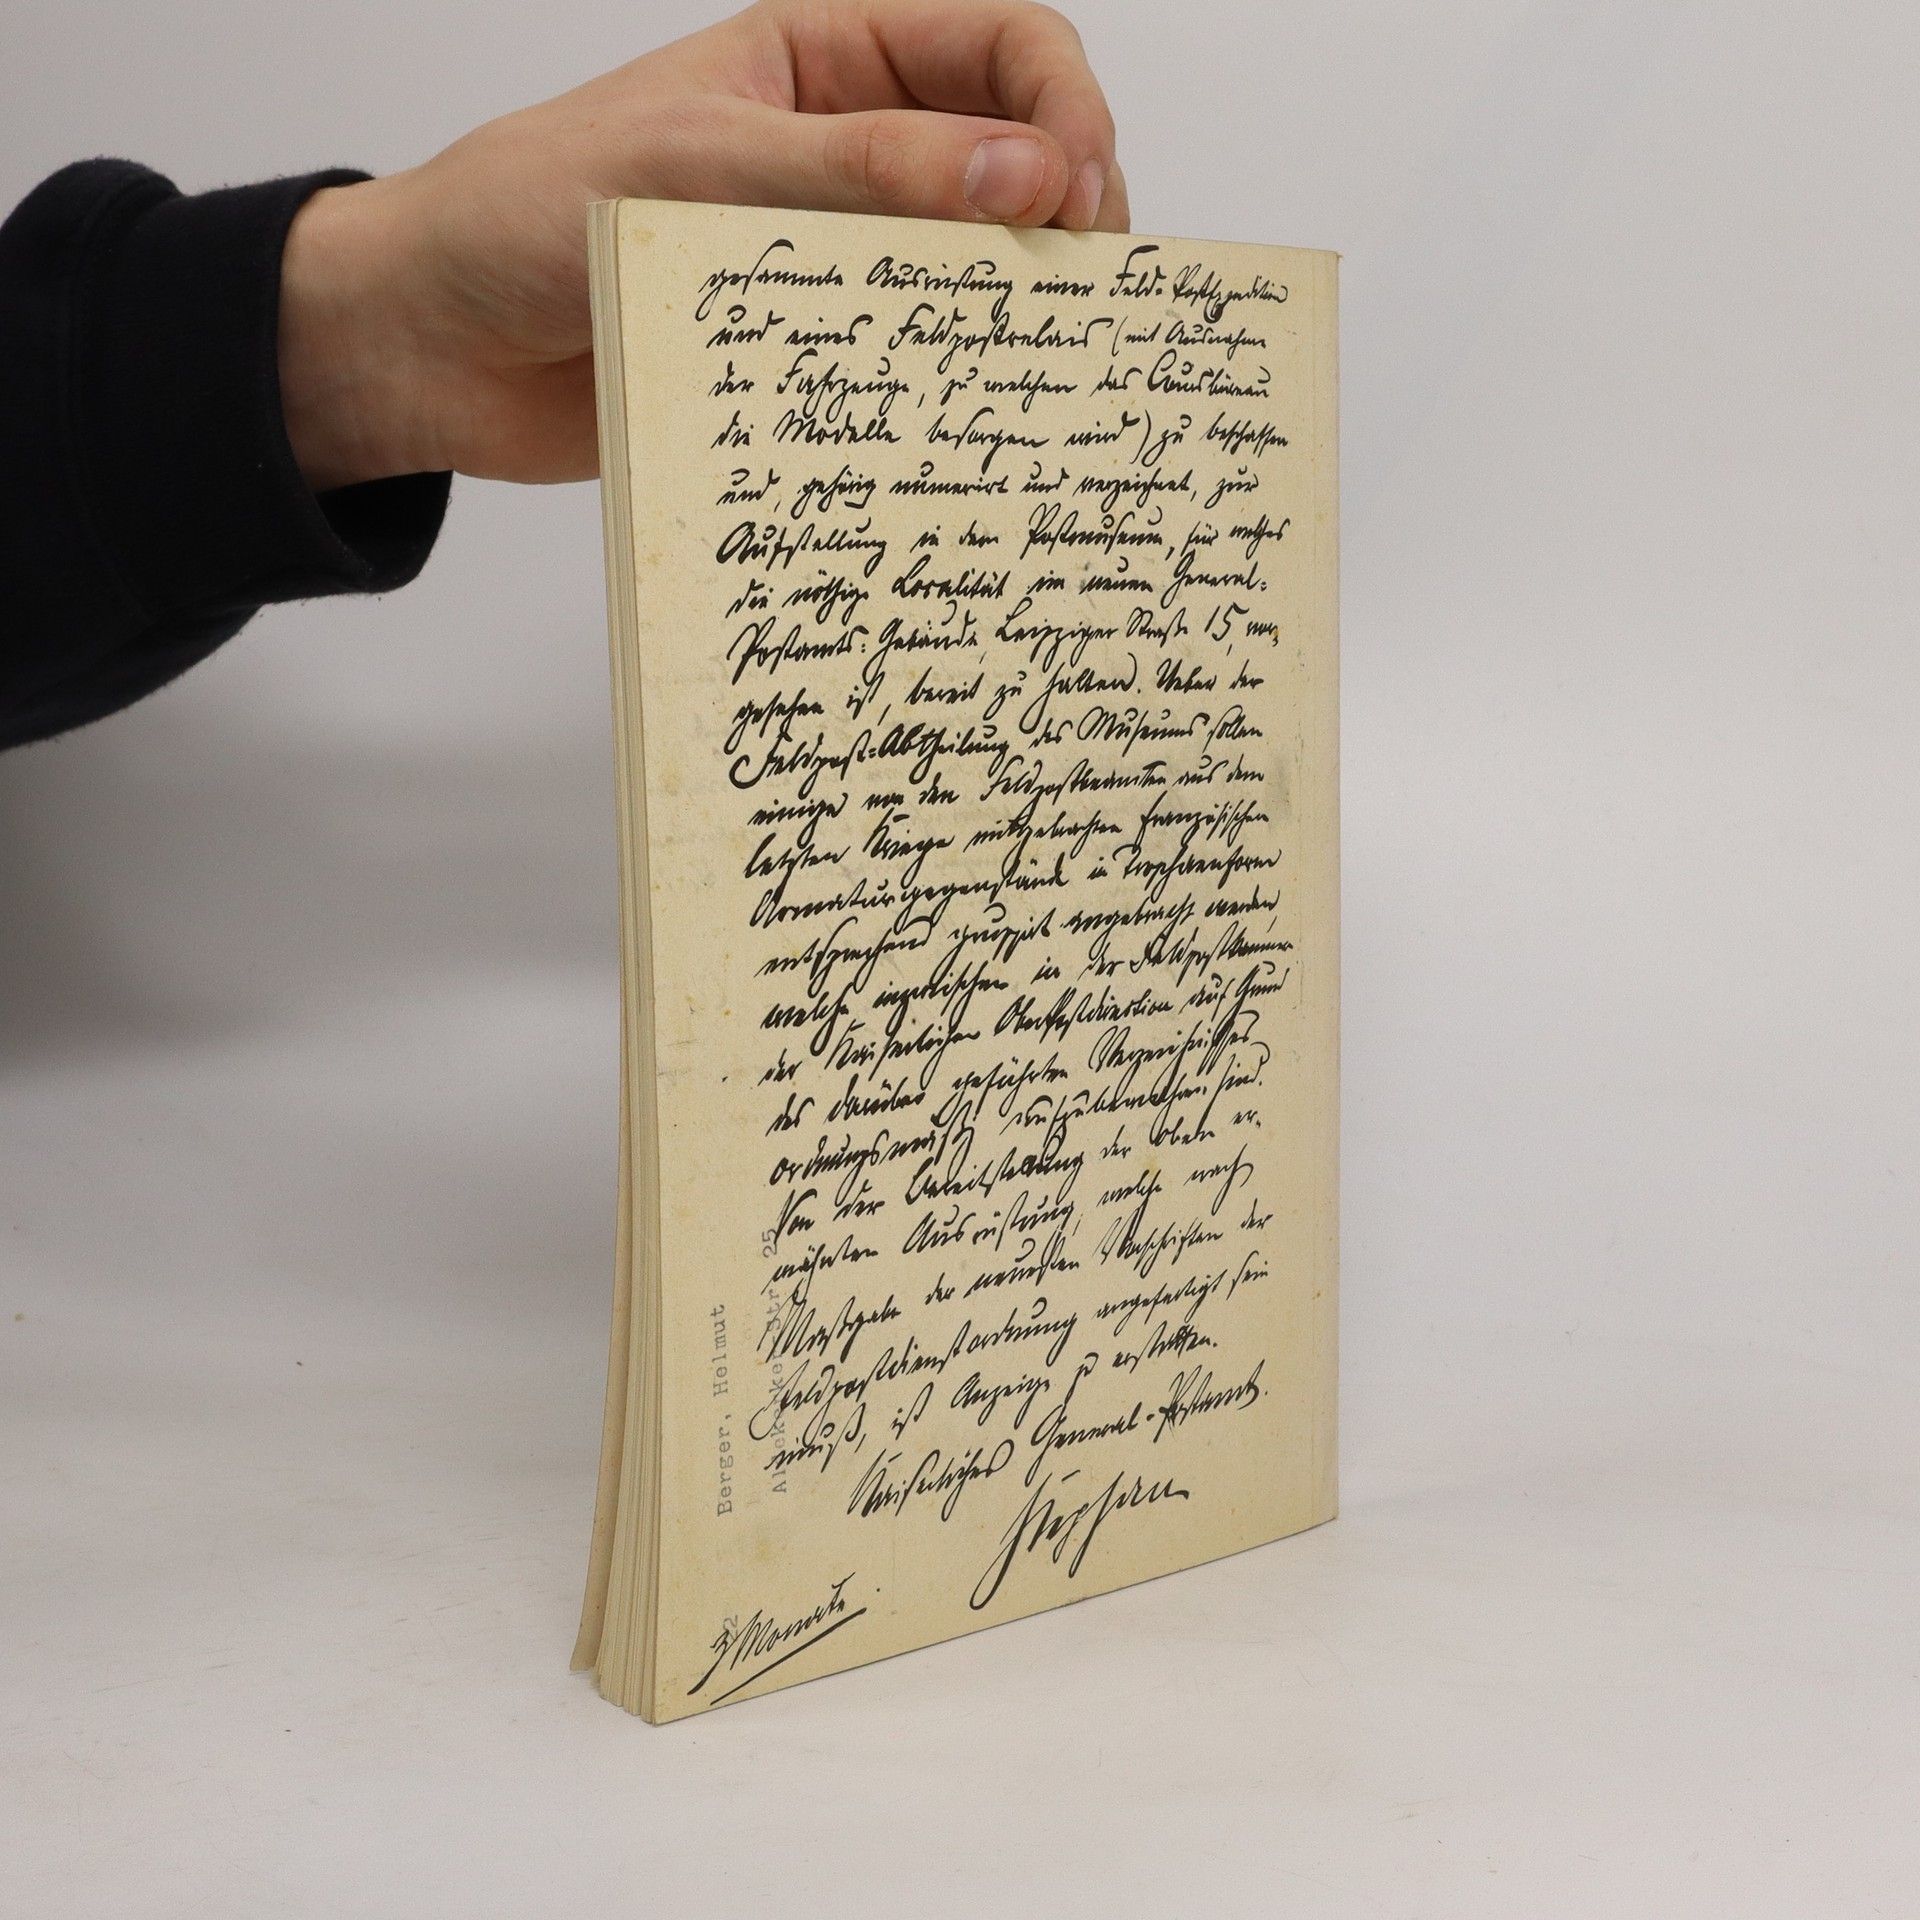 gesammte Ausrüstung einer Feld-PostExpedition
und eines Feldpostrelais (mit Ausnahme
der Fahrzeuge, zu welchen das Coursbüreau
die Modelle besorgen wird) zu beschaffen
und, gehörig numerirt und verzeichnet, zur
Aufstellung in dem Postmuseum, für welches
die nöthige Localität im neuen General-
Postamts-Gebäude, Leipziger Straße 15, vor-
gesehen ist, bereit zu halten. Ueber der
Feldpost-Abtheilung des Museums sollen
einige von den Feldpostbeamten aus dem
letzten Kriege mitgebrachten französischen
Armaturgegenstände in Trophaenform
entsprechend gruppirt angebracht werden,
welche inzwischen in der Feldpostkammer
der Kaiserlichen OberPostdirection auf Grund
des darüber geführten Verzeichnisses
ordnungsmäßig aufzubewahren sind.
Von der Bereitstellung der oben er-
wähnten Ausrüstung, welche nach
Maßgabe der neuesten Vorschriften der
Feldpostdienstordnung angefertigt sein
muß, ist Anzeige zu erstatten.
Kaiserliches General-Postamt.
Stephan
3 Monate.
Berger, Helmut
25
22